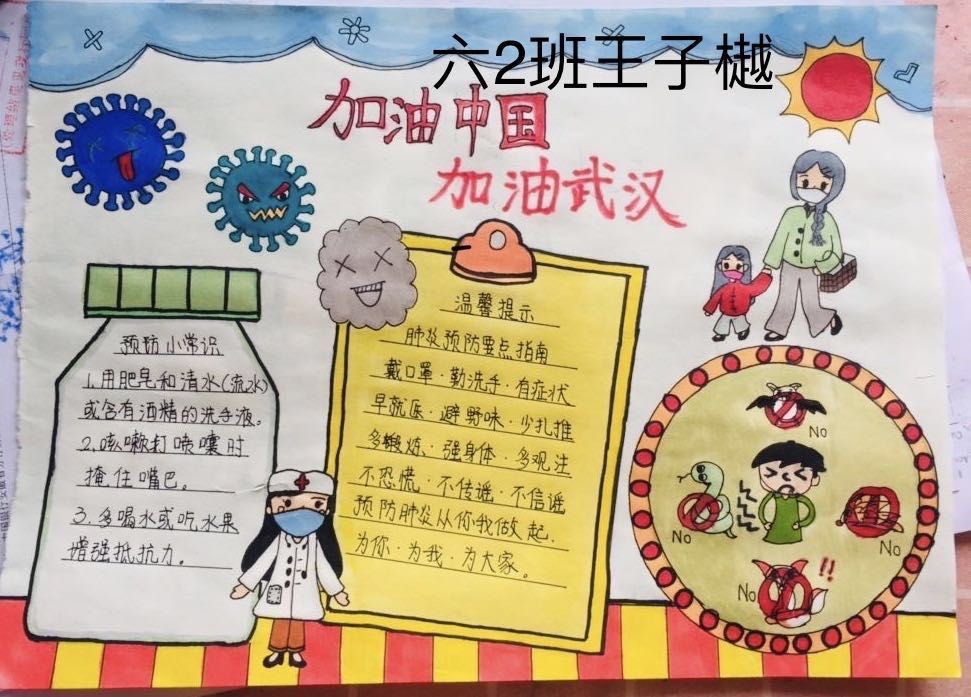 六2班王子樾
加油中国
加油武汉
预防小常识
1.用肥皂和清水(流水)
或含有酒精的洗手液。
2.咳嗽打喷嚏时
掩住嘴巴。
3.多喝水或吃水果
增强抵抗力。
温馨提示
肺炎预防要点指南
戴口罩·勤洗手·有症状
早就医·避野味·少扎推
多锻炼·强身体·多观注
不恐慌·不传谣·不信谣
预防肺炎从你我做起.
为你·为我·为大家。
No
No
No
No
!!